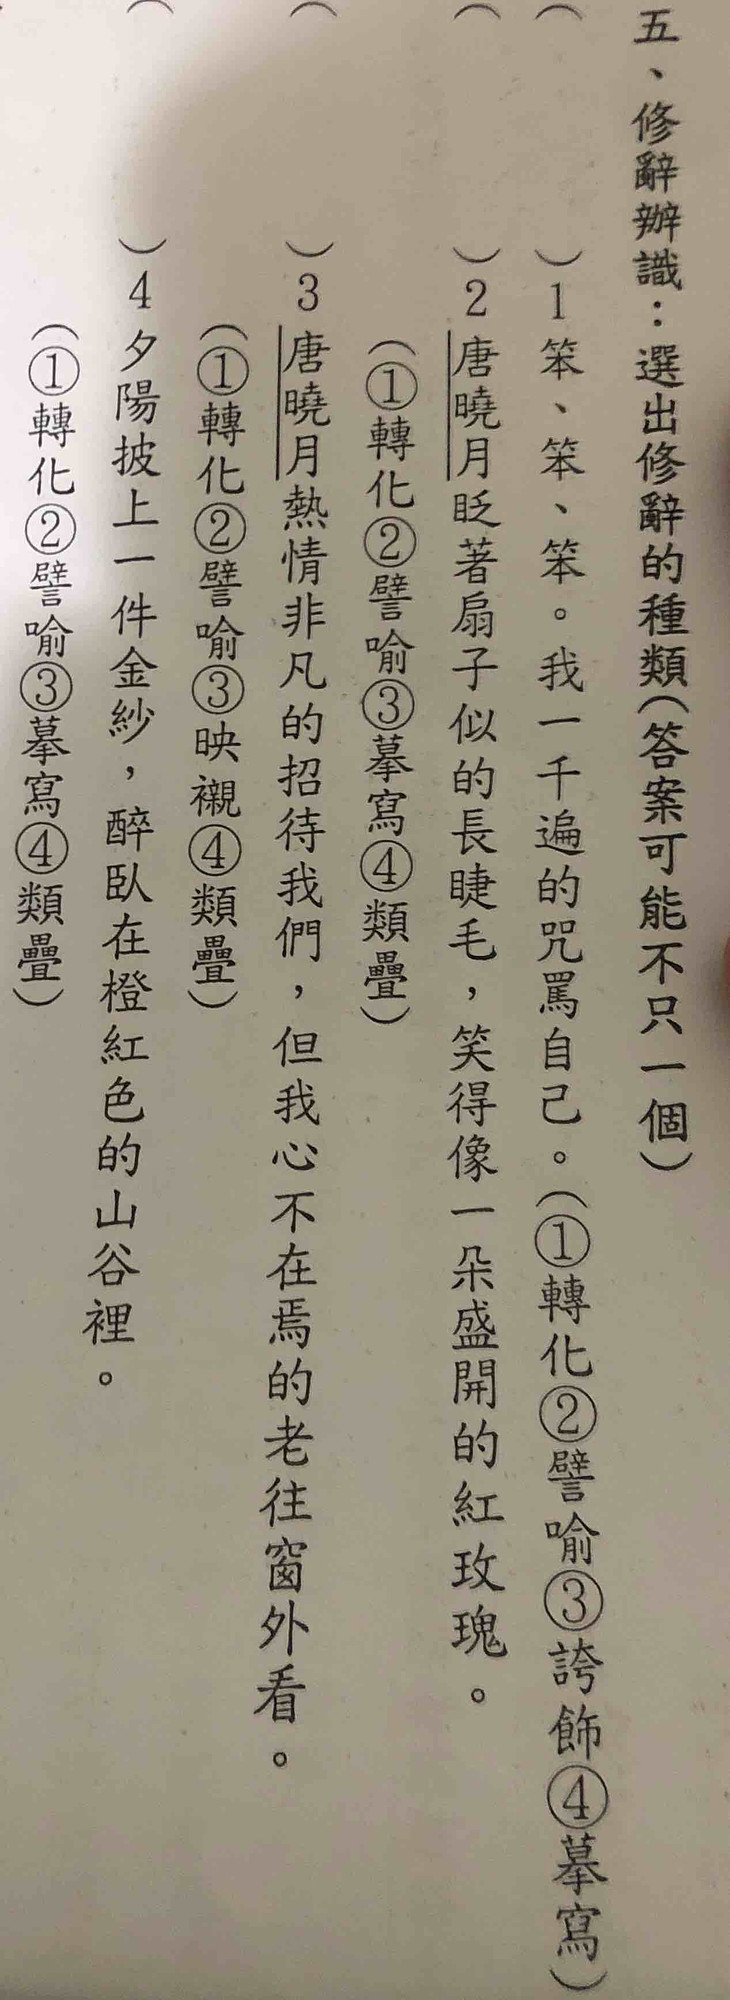 五、修辭辦識：選出修辭的種類（答案可能不只一個）
（　　）1 笨、笨、笨。我一千遍的咒罵自己。（①轉化②譬喻③誇飾④摹寫）
（　　）2 唐曉月眨著扇子似的長睫毛，笑得像一朵盛開的紅玫瑰。
（①轉化②譬喻③摹寫④類疊）
（　　）3 唐曉月熱情非凡的招待我們，但我心不在焉的老往窗外看。
（①轉化②譬喻③映襯④類疊）
（　　）4 夕陽披上一件金紗，醉臥在橙紅色的山谷裡。
（①轉化②譬喻③摹寫④類疊）